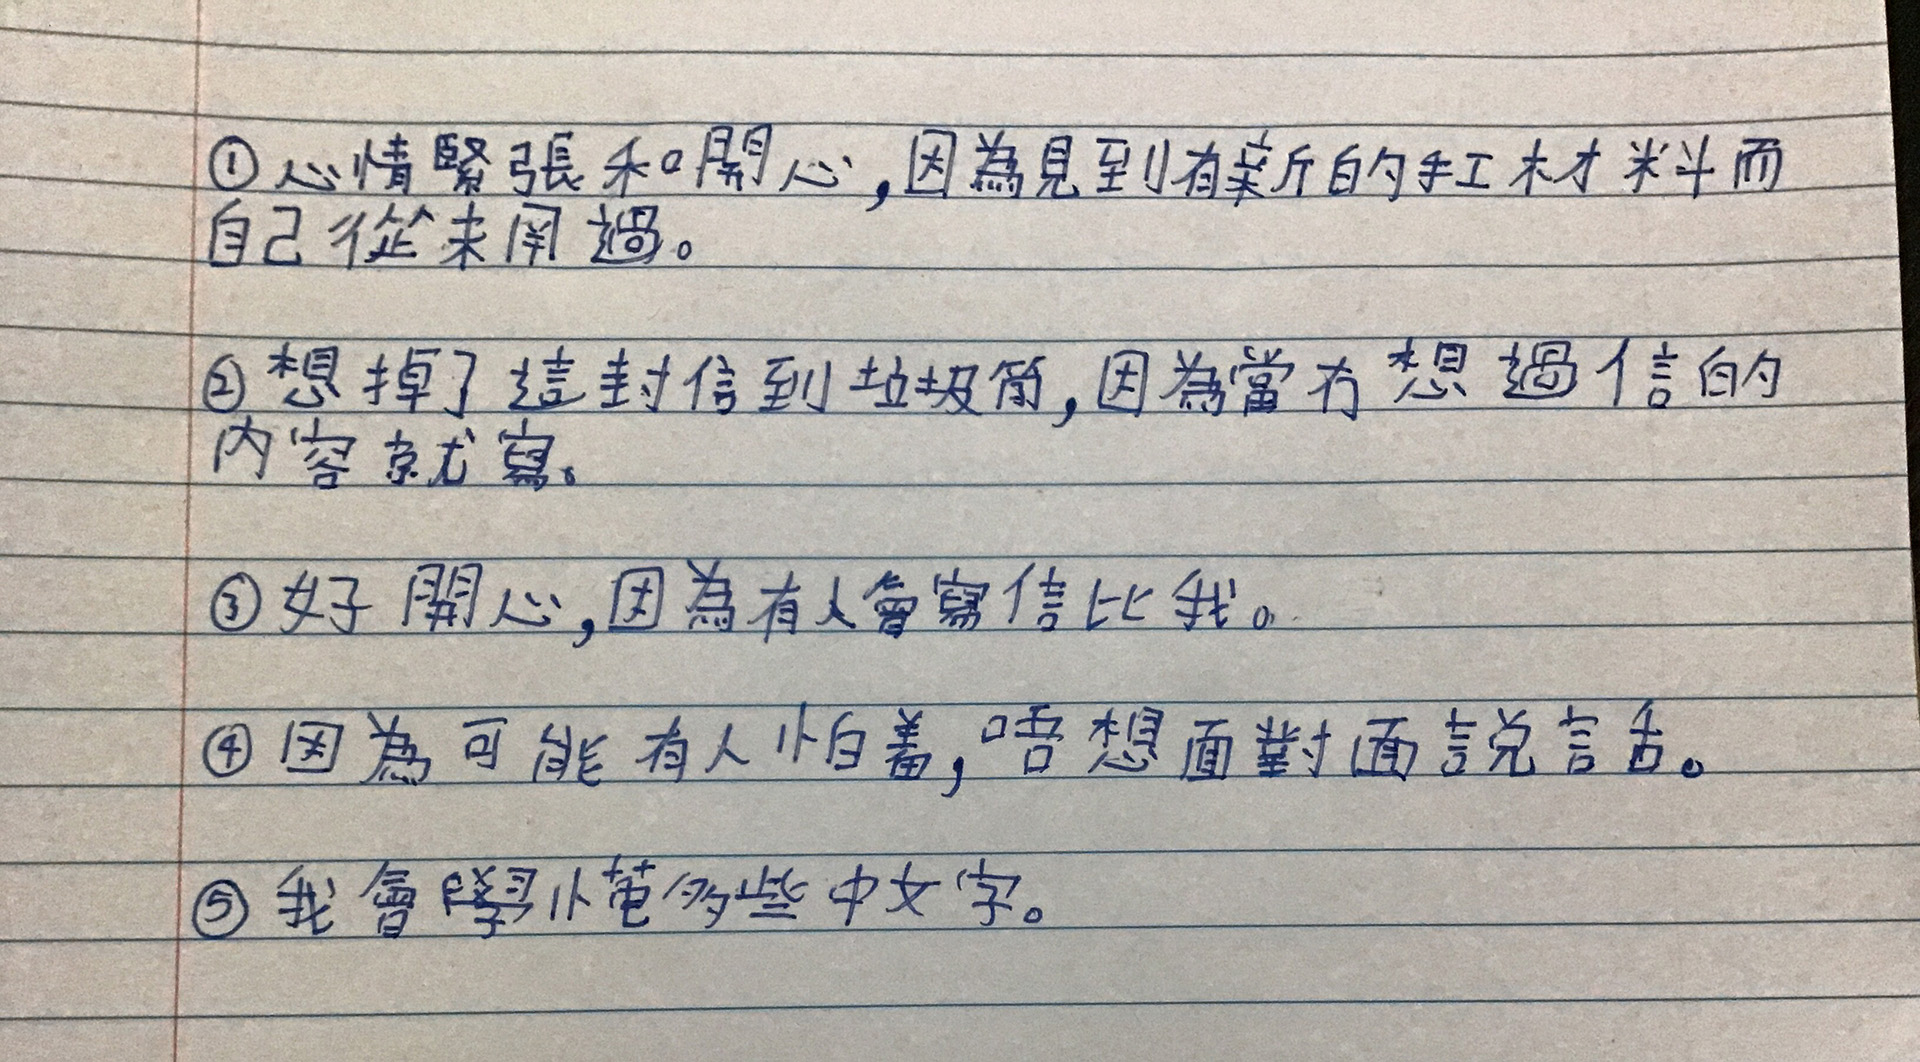 ①心情緊張和開心,因為見到有新的手工材料而
自己從未用過。
②想掉了這封信到垃圾筒,因為當冇想過信的
內容就寫。
③好開心,因為有人會寫信比我。
④因為可能有人怕羞,唔想面對面說話。
⑤我會學懂多些中文字。